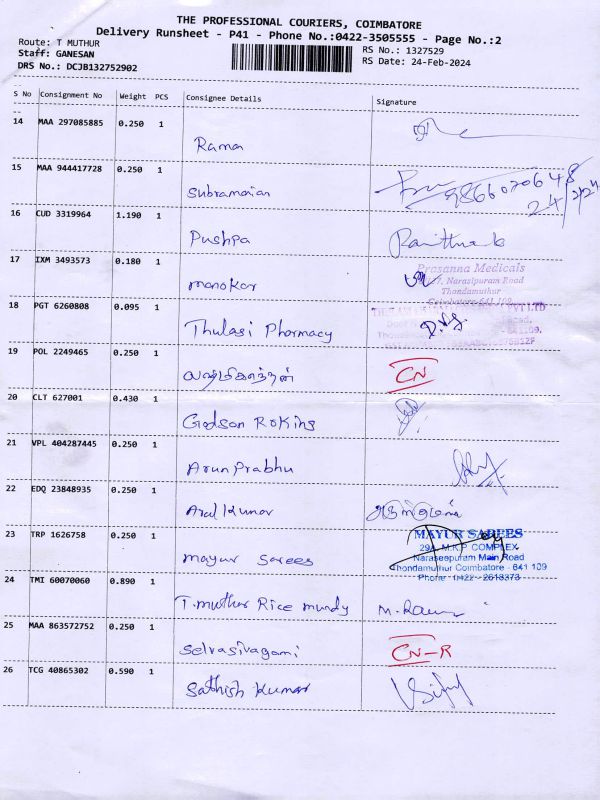 THE PROFESSIONAL COURIERS, COIMBATORE
Delivery Runsheet - P41 - Phone No.:0422-3505555 - Page No.:2
Route: T MUTHUR
RS No.: 1327529
Staff: GANESAN
RS Date: 24-Feb-2024
DRS No.: DCJB132752902
S No Consignment No Weight PCS Consignee Details Signature
14 MAA 297085885 0.250 1
Rama
15 MAA 944417728 0.250 1
Subramaian
9866070648
24/2/24
16 CUD 3319964 1.190 1
Pushpa
17 IXM 3493573 0.180 1
Prasanna Medicals
Narasipuram Road
Thondamuthur
Coimbatore 641 109
manokar
18 PGT 6260808 0.095 1
PVT LTD
Thulasi Pharmacy
19 POL 2249465 0.250 1
CN
20 CLT 627001 0.430 1
Godson Roking
21 VPL 404287445 0.250 1
Arun Prabhu
22 EDQ 23848935 0.250 1
Arul Kumar
23 TRP 1626758 0.250 1
MAYUR SAREES
29A, M.K.P COMPLEX
Naraseepuram Main Road
Thondamuthur Coimbatore - 641 109
Phone : 0422 - 2618373
mayur Sarees
24 TMI 60070060 0.890 1
T.muthur Rice mundy
25 MAA 863572752 0.250 1
Selvasivagami
CN-R
26 TCG 40865302 0.590 1
Sathish Kumar